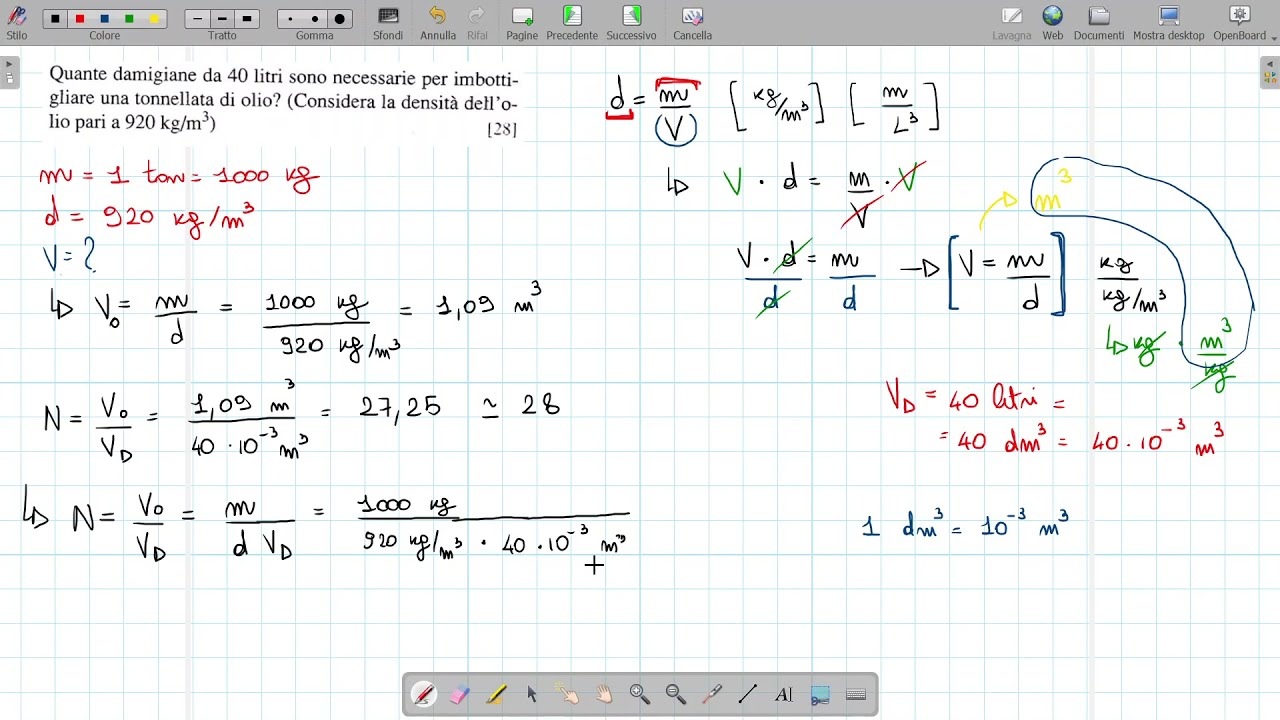 Stilo Colore Tratto Gomma Sfondi Annulla Rifai Pagine Precedente Successivo Cancella Lavagna Web Documenti Mostra desktop OpenBoard
Quante damigiane da 40 litri sono necessarie per imbotti-
gliare una tonnellata di olio? (Considera la densità dell'o-
lio pari a 920 kg/m³)
[28]
m = 1 ton = 1000 kg
d = 920 kg/m³
V = ?
↳ V₀ = m/d = 1000 kg / 920 kg/m³ = 1,09 m³
N = V₀/V_D = 1,09 m³ / 40 · 10⁻³ m³ = 27,25 ≃ 28
↳ N = V₀/V_D = m / d V_D = 1000 kg / 920 kg/m³ · 40 · 10⁻³ m³
d = m/V [kg/m³] [m/L³]
↳ V · d = m/V · V
V · d / d = m/d → [V = m/d] kg / kg/m³
m³
↳ kg · m³/kg
V_D = 40 litri =
= 40 dm³ = 40 · 10⁻³ m³
1 dm³ = 10⁻³ m³
AI